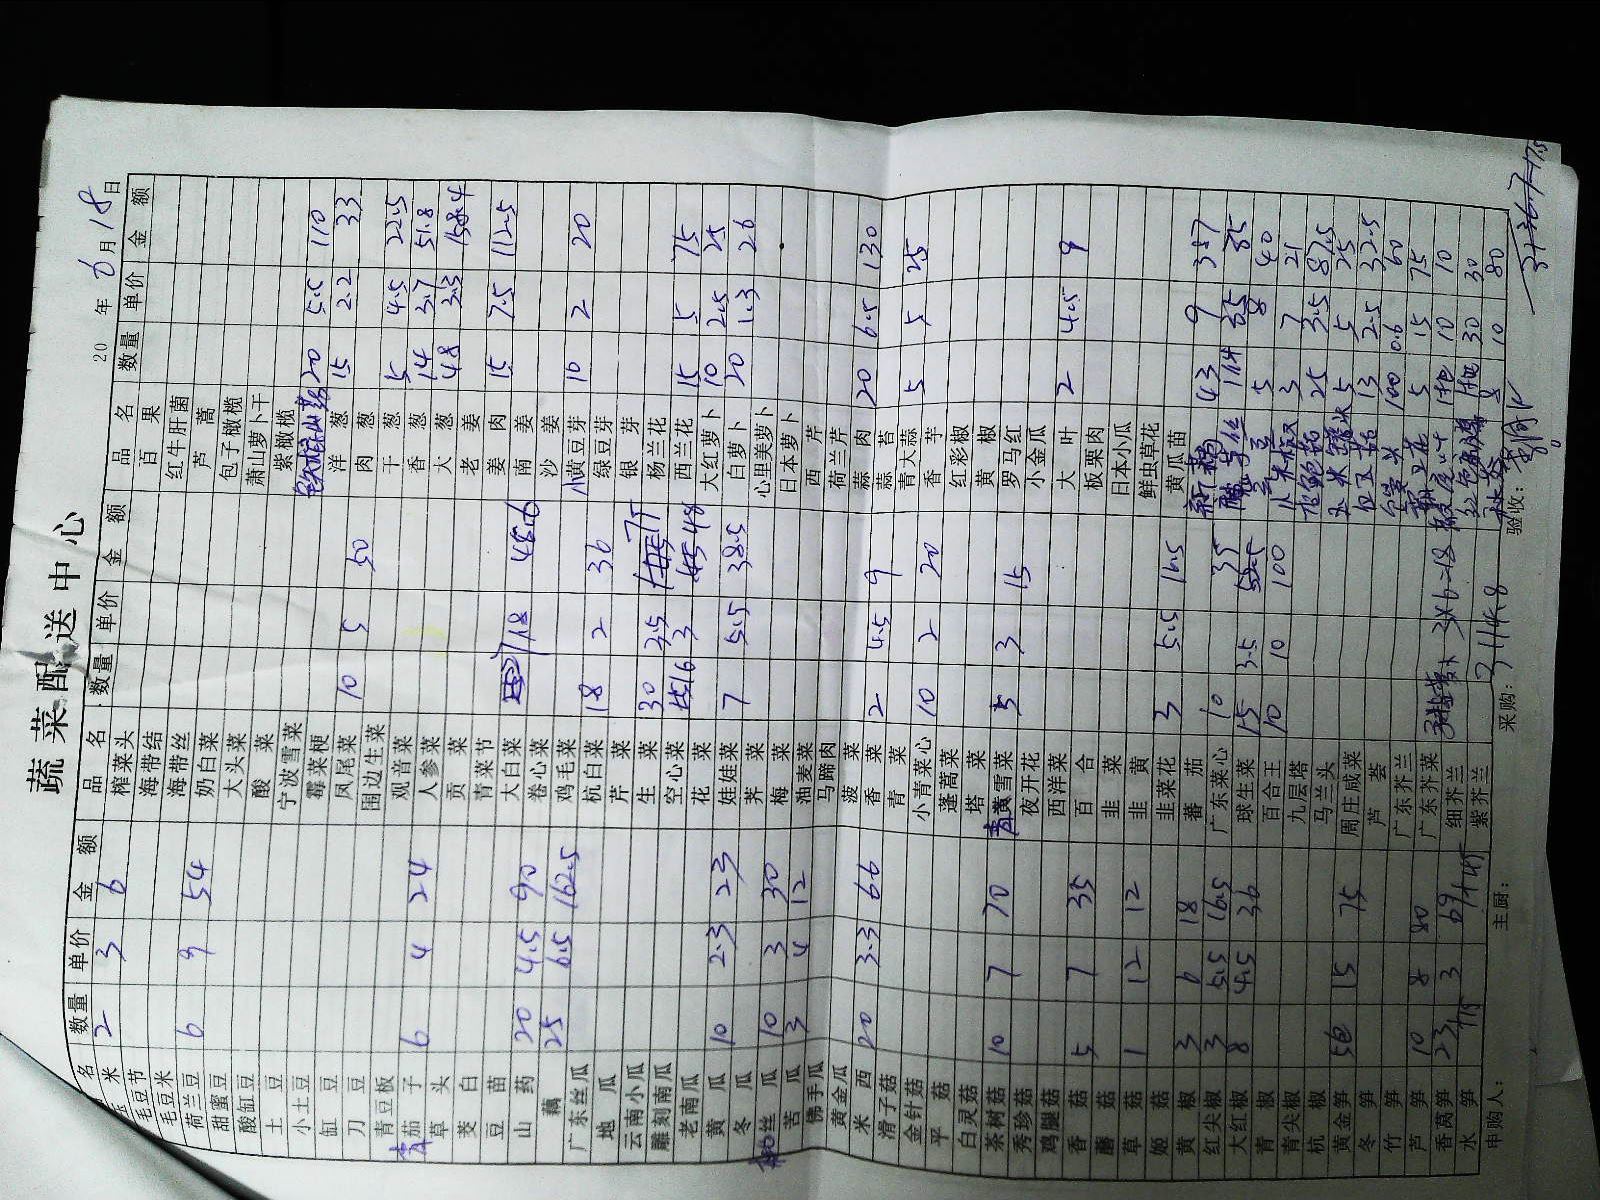 蔬菜配送中心
20 年 6 月 18 日
品名 数量 单价 金额
玉米 2 3 6
毛豆节
毛豆米
荷兰豆 6 9 54
甜蜜豆
酸缸豆
土豆
小土豆
缸豆
刀豆
青豆板
青茄子 6 4 24
草头
茭白
豆苗
山药 20 4.5 90
藕 25 6.5 162.5
广东丝瓜
地瓜
云南小瓜
雕刻南瓜
老南瓜
黄瓜 10 2.3 23
冬瓜
丝瓜 10 3 30
苦瓜 3 4 12
佛手瓜
黄金瓜
米西 20 3.3 66
滑子菇
金针菇
平菇
白灵菇
茶树菇 10 7 70
秀珍菇
鸡腿菇
香菇 5 7 35
蘑菇
草菇 1 12 12
姬菇
黄椒 3 6 18
红尖椒 3 5.5 16.5
大红椒 8 4.5 36
青椒
青尖椒
杭椒
黄金笋 5包 15 75
冬笋
竹笋
芦笋 10 8 80
香莴笋 23 3 69
水笋
品名 数量 单价 金额
榨菜头
海带结
海带丝
奶白菜
大头菜
酸菜
宁波雪菜
霉菜梗
凤尾菜 10 5 50
围边生菜
观音菜
人参菜
贡菜
青菜节
大白菜 18 48.6
卷心菜
鸡毛菜
杭白菜 18 2 36
芹菜
生菜 30 3.5
空心菜 16 3 48
花菜
娃娃菜 7 5.5 38.5
荠菜
梅菜
油麦菜
马蹄肉
菠菜
香菜 2 4.5 9
青菜
小青菜心 10 2 20
蓬蒿菜
塔菜
雪菜 5 3 15
夜开花
西洋菜
百合
韭菜
韭黄
韭菜花
蕃茄 3 5.5 16.5
广东菜心 10 35
球生菜 15 3.5 52.5
百合王 10 10 100
九层塔
马兰头
周庄咸菜
芦荟
广东芥兰
广东芥菜
细芥兰 3×6=18
紫芥兰
品名 数量 单价 金额
百果
红牛肝菌
芦蒿
包子橄榄
萧山萝卜干
紫橄榄
铁棍山药 20 5.5 110
洋葱 15 2.2 33
肉葱
干葱 5 4.5 22.5
香葱 14 3.7 51.8
大葱 48 3.3 158.4
老姜
姜肉 15 7.5 112.5
南姜
沙姜
小黄豆芽 10 2 20
绿豆芽
银芽
杨兰花
西兰花 15 5 75
大红萝卜 10 2.5 25
白萝卜 20 1.3 26
心里美萝卜
日本萝卜
西芹
荷兰芹
蒜肉 20 6.5 130
蒜苔
青大蒜 5 5 25
香芋
红彩椒
黄椒
罗马红
小金瓜
大叶 2 4.5 9
板栗肉
日本小瓜
鲜虫草花
黄瓜苗
43 9 387
1件 85 85
5 8 40
3 7 21
25 3.5 87.5
5 5 25
13 2.5 32.5
100 0.6 60
5 15 75
10 10
30 30
8 10 80
申购人：
主厨：
采购： 3114.8
验收：